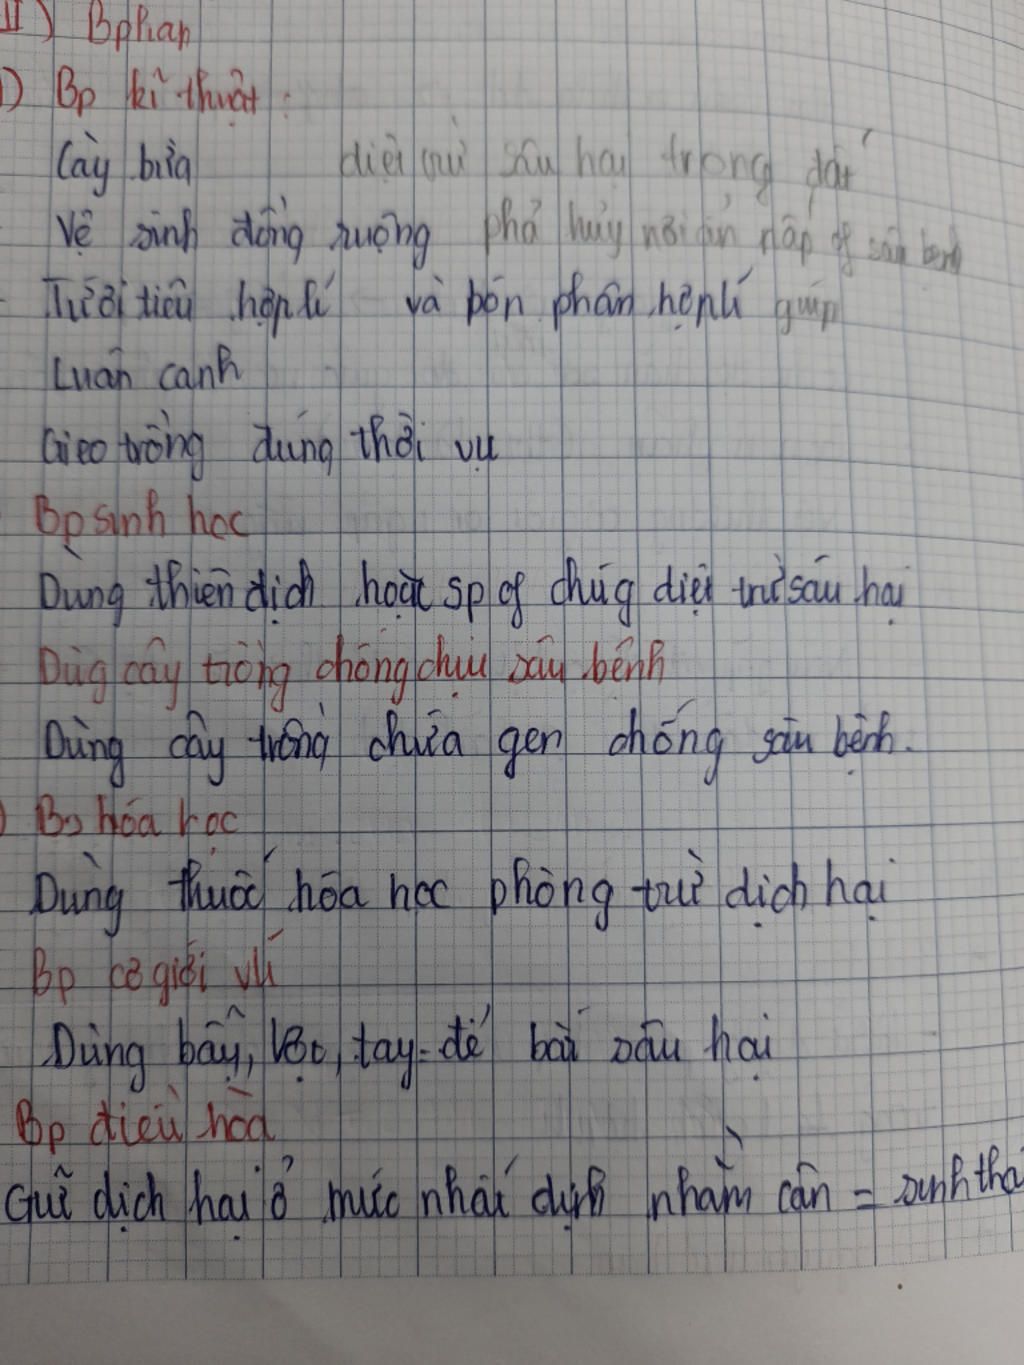 II) Bphap
1) Bp kĩ thuật:
Cày bừa diệt trừ sâu hại trong đất
Vệ sinh đồng ruộng phá hủy nơi ẩn nấp of sâu bệnh
Tưới tiêu hợp lí và bón phân hợp lí giúp
Luân canh
Gieo trồng đúng thời vụ
Bp sinh học
Dùng thiên địch hoặc sp of chúg diệt trừ sâu hại
Dùg cây trồng chống chịu sâu bệnh
Dùng cây trồng chứa gen chống sâu bệnh.
) Bp hóa học
Dùng thuốc hóa học phòng trừ dịch hại
Bp cơ giới vlí
Dùng bẫy, vợt, tay để bắt sâu hại
Bp điều hòa
Giữ dịch hại ở mức nhất định nhằm cân = sinh thá